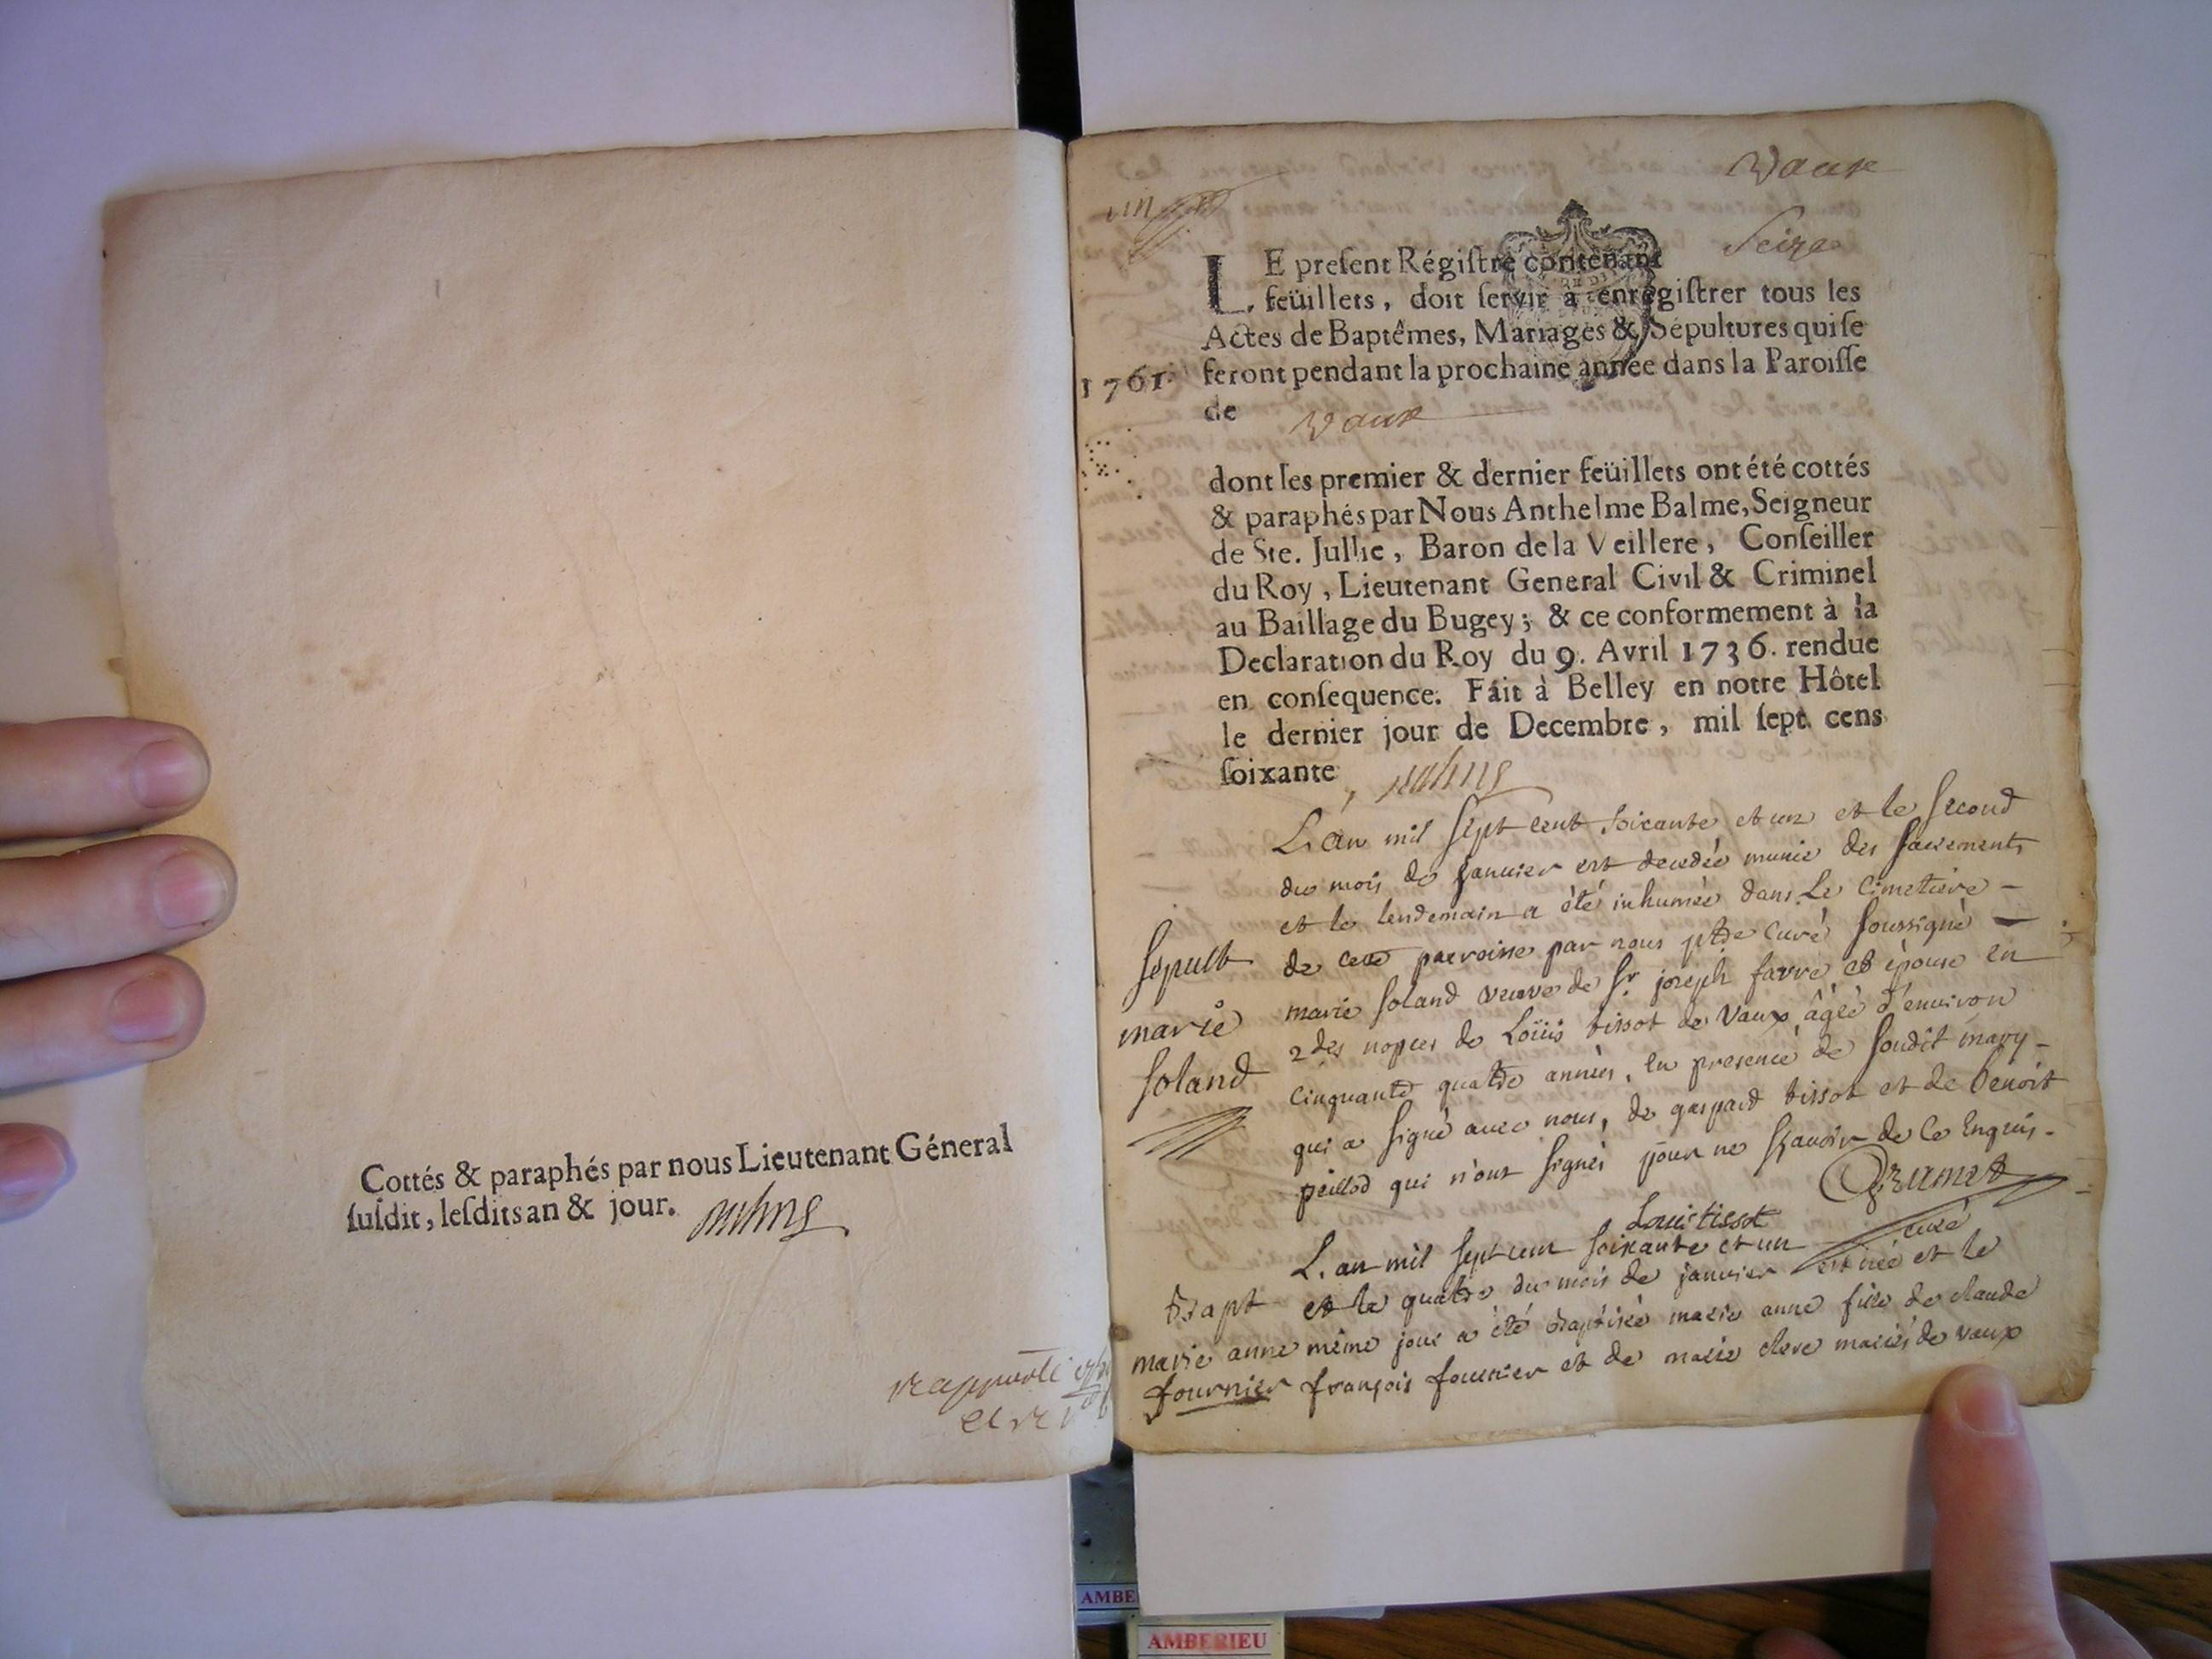 Cottés & paraphés par nous Lieutenant Géneral
ſuſdit, leſdits an & jour.
rapporté
Vaux
Seize
LE preſent Régiſtre contenant
feüillets, doit ſervir à enrégiſtrer tous les
Actes de Baptêmes, Mariages & Sépultures qui ſe
1761. feront pendant la prochaine année dans la Paroiſſe
de Vaux
dont les premier & dernier feüillets ont été cottés
& paraphés par Nous Anthelme Balme, Seigneur
de Ste. Jullie, Baron de la Veillere, Conſeiller
du Roy, Lieutenant General Civil & Criminel
au Baillage du Bugey; & ce conformement à la
Declaration du Roy du 9. Avril 1736. rendue
en conſequence. Fait à Belley en notre Hôtel
le dernier jour de Decembre, mil ſept cens
ſoixante,
L'an mil sept cent soixante et un et le second
du mois de janvier est decedée munie des sacrements
et le lendemain a été inhumée dans Le Cimetiere -
de cette parroisse par nous ptre Curé soussigné -
marie soland veuve de Sr joseph favre et épouse en
2des nopces de Loüis tissot de Vaux âgée d'environ
cinquante quatre années, en presence de soudit mary -
qui a signé avec nous, de gaspard tissot et de benoit
peillod qui n'ont signés pour ne sçavoir de ce Enquis -
sepult
marie
soland
Brumet
curé
Louis tissot
L'an mil sept cent soixante et un
et le quatre du mois de janvier est née et le
même jour a été baptisée marie anne fille de claude
françois fournier et de marie clere mariés de vaux
Bapt
marie anne
fournier
AMBE
AMBERIEU